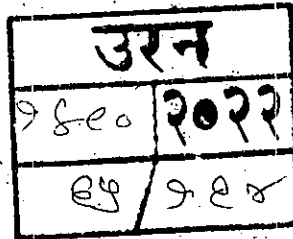 उरन
१४९० २०२२
६५/१९४